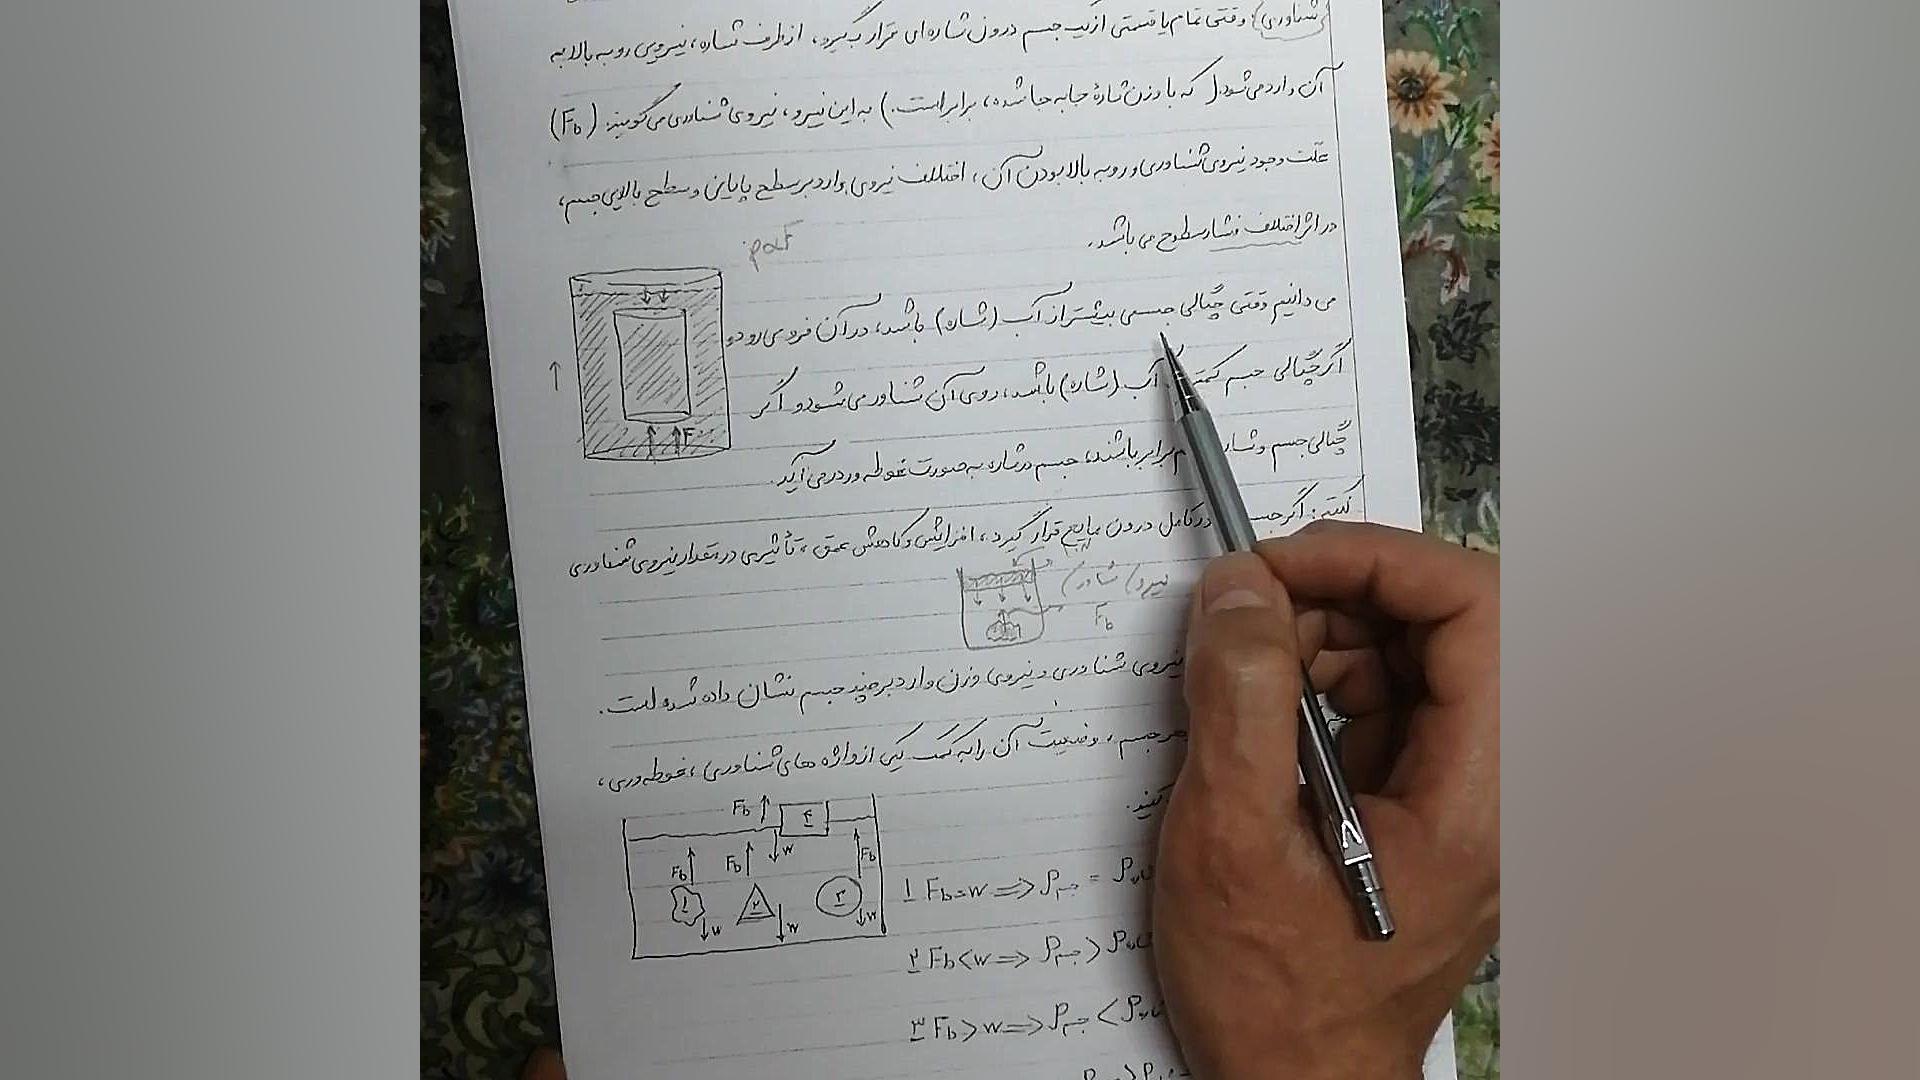 (شناوری): وقتی تمام یا قسمتی از یک جسم درون شاره‌ای قرار بگیرد، از طرف شاره، نیرویی رو به بالا به
آن وارد می‌شود. (که با وزن شارهٔ جابه‌جا شده، برابر است.) به این نیرو، نیروی شناوری می‌گویند. (Fb)
علت وجود نیروی شناوری و رو به بالا بودن آن، اختلاف نیروی وارد بر سطح پایینی و سطح بالایی جسم،
در اثر اختلاف فشار سطوح می‌باشد.
pαF
می‌دانیم وقتی چگالی جسمی بیشتر از آب (شاره) باشد، در آن فرو می‌رود و
اگر چگالی جسم کمتر آب (شاره) باشد، روی آن شناور می‌شود و اگر
F
چگالی جسم و شاره برابر باشند، جسم در شاره به صورت غوطه‌ور در می‌آید.
نکته: اگر درون مایع قرار گیرد، افزایش و کاهش عمق، تأثیری در مقدار نیروی شناوری
نیروی شناوری
Fb
نیروی شناوری و نیروی وزن وارد بر چند جسم نشان داده شده است.
هر جسم، وضعیت آن را به کمک یکی از واژه‌های شناوری، غوطه‌وری،
کنید.
Fb ۴ w
Fb Fb Fb
۱ ۲ ۳
w w w
۱ Fb = w => ρجسم = ρشاره
۲ Fb < w => ρجسم > ρشاره
۳ Fb > w => ρجسم < ρشاره